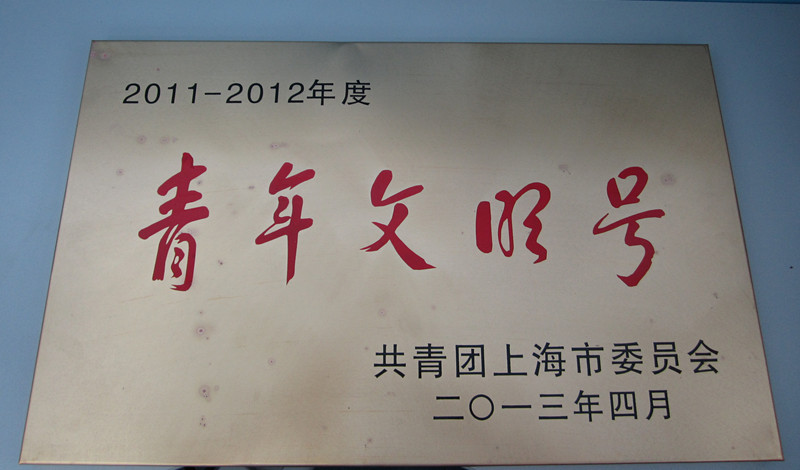 2011-2012年度
青年文明号
共青团上海市委员会
二〇一三年四月